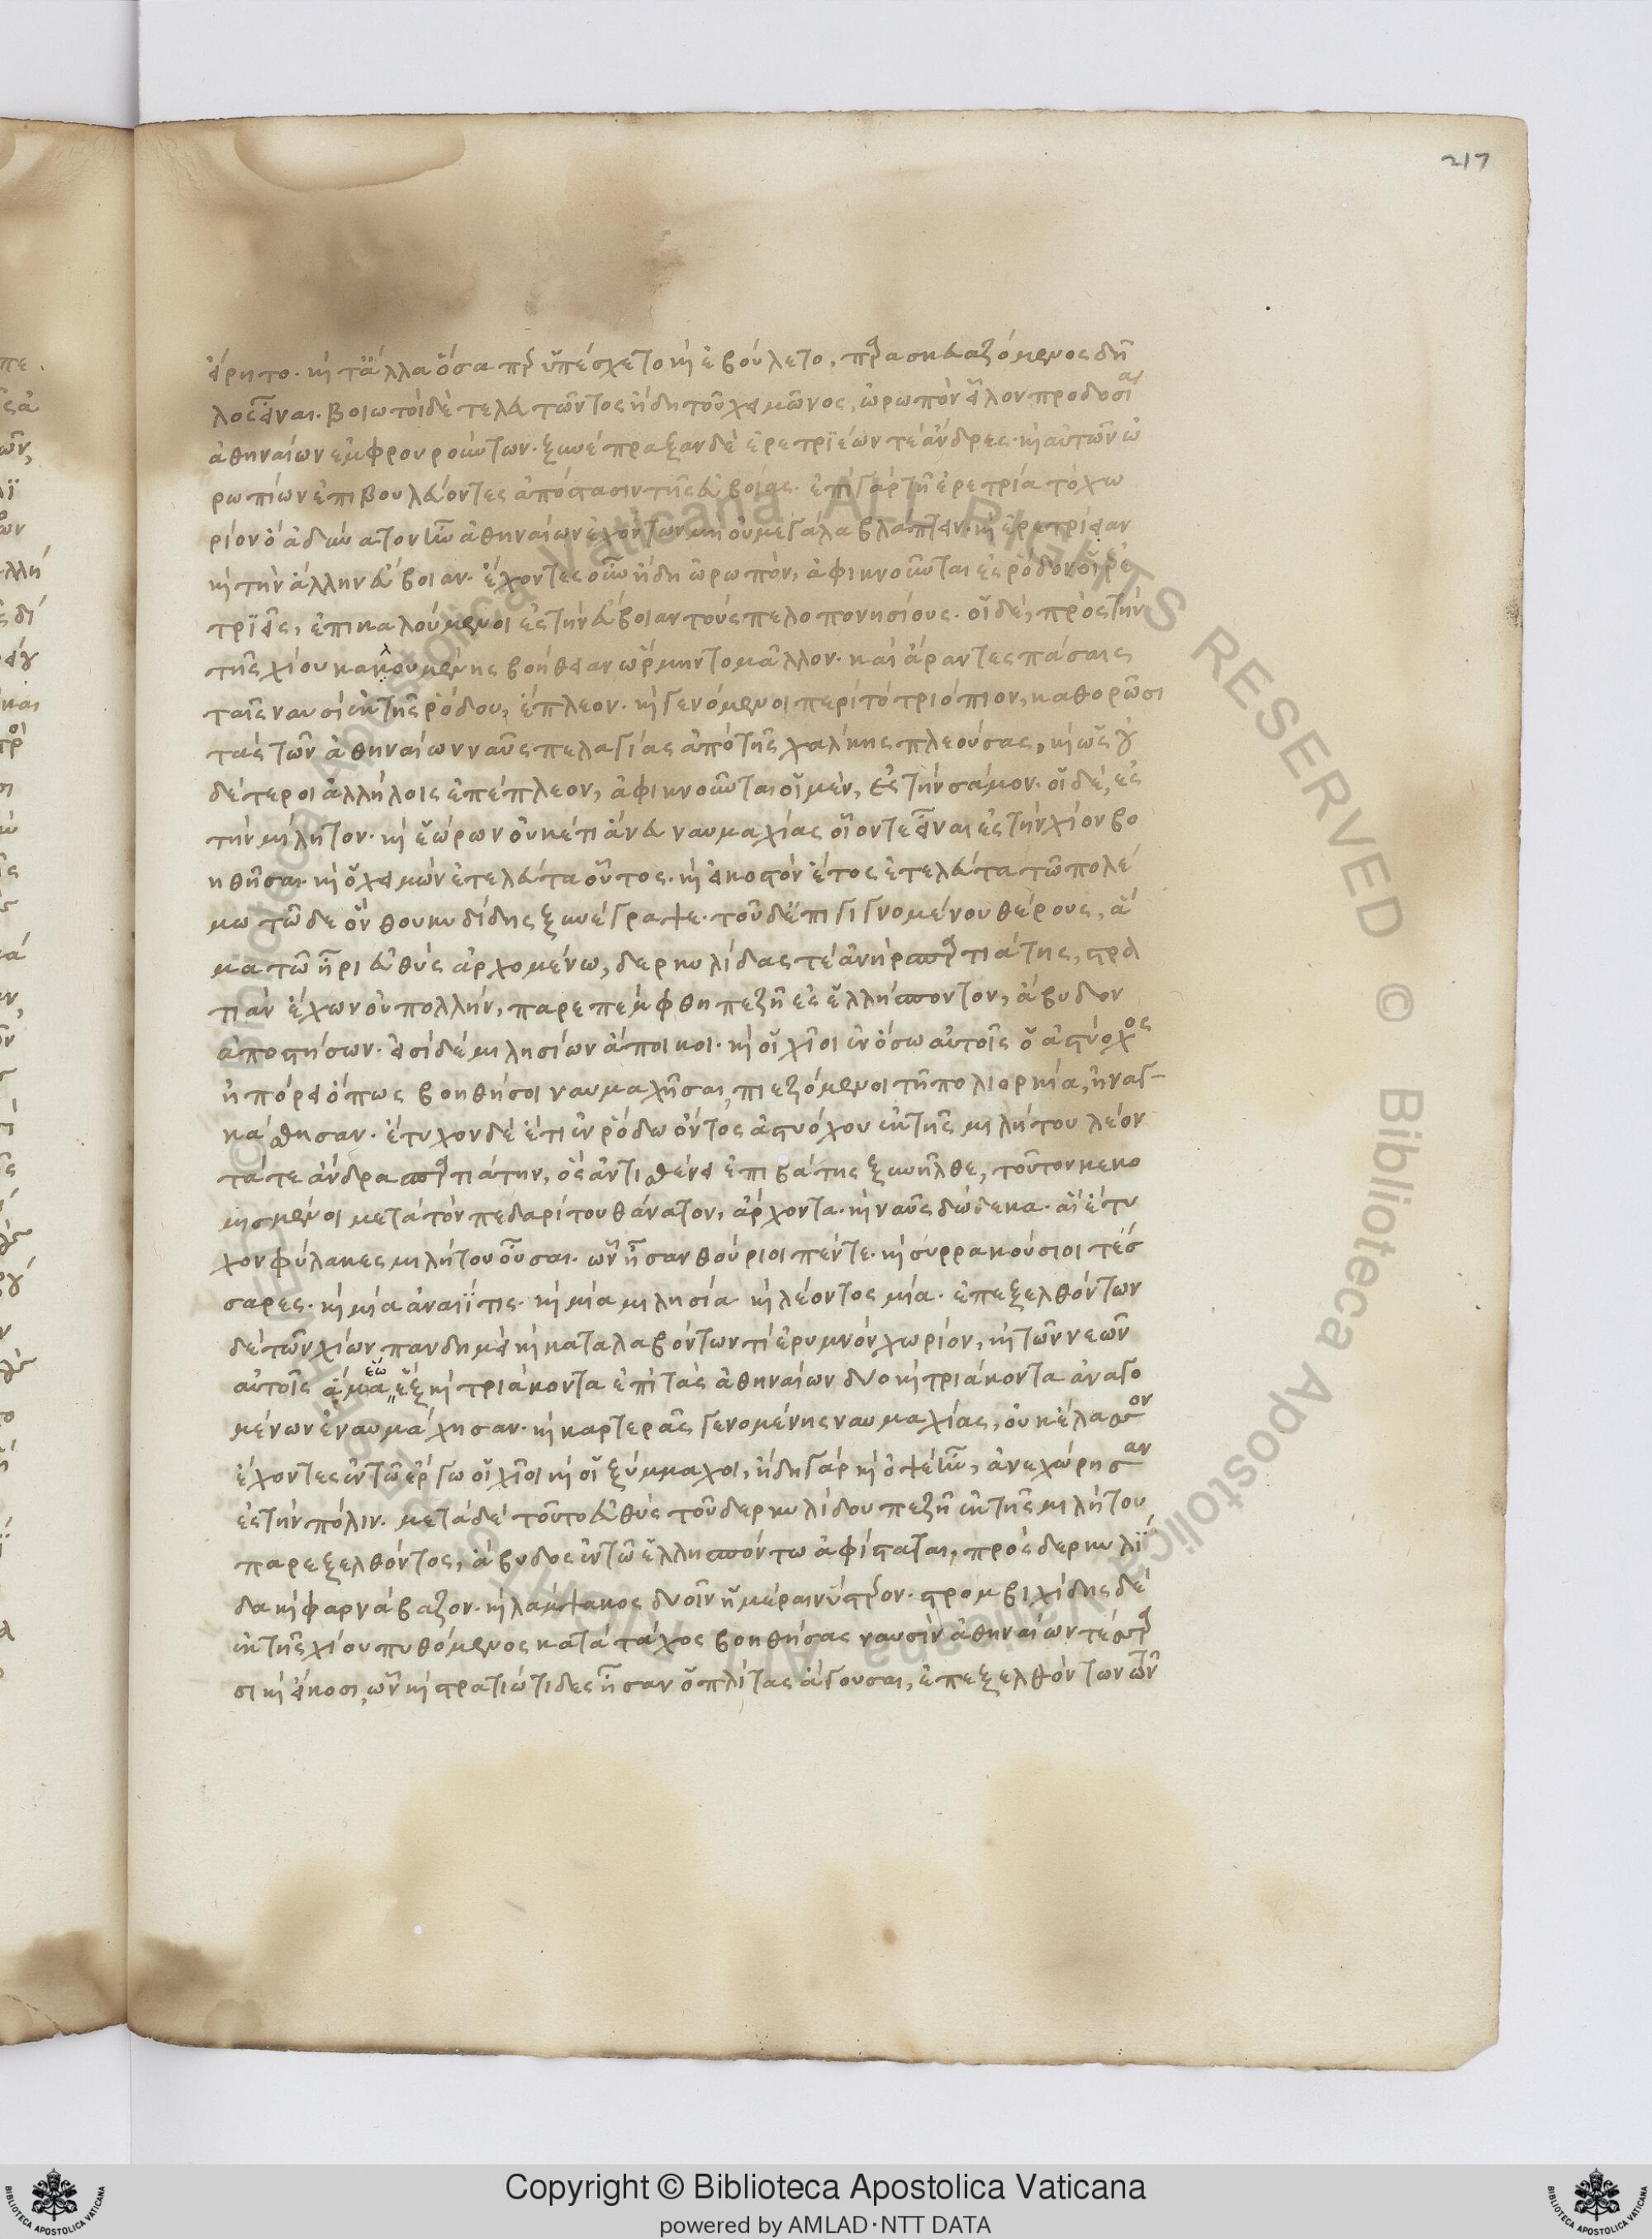 217
είρητο. καὶ τἄλλα ὅσαπερ ὑπέσχετο καὶ ἐβούλετο, παρασκευαζόμενος δῆ
λος εἶναι. βοιωτοὶ δὲ τελευτῶντος ἤδη τοῦ χειμῶνος, ὠρωπὸν εἷλον προδοσίαι
ἀθηναίων ἐμφρουρούντων. ξυνέπραξαν δὲ ἐρετριέων τὲ ἄνδρες. καὶ αὐτῶν ὠ
ρωπίων ἐπιβουλεύοντες ἀπόστασιν τῆς εὐβοίας. ἐπὶ γὰρ τῆ ἐρετρία τὸ χω
ρίον ὂ ἀδύνατον ἦν ἀθηναίων ἐχόντων μὴ οὐ μεγάλα βλάπτειν. καὶ ἐρετρίειαν
καὶ τὴν ἄλλην εὔβοιαν. ἔχοντες οὖν ἤδη ὠρωπὸν, ἀφικνοῦνται ἐς ρόδον οἱ ἐρε
τριεῖς, ἐπικαλούμενοι ἐς τὴν εὔβοιαν τοὺς πελοπονησίους. οἱ δὲ, πρὸς τὴν
τῆς χίου κακουμένης βοήθειαν ὥρμηντο μᾶλλον. καὶ ἄραντες πάσαις
ταῖς ναυσὶ ἐκ τῆς ρόδου, ἔπλεον. καὶ γενόμενοι περὶ τὸ τριόπιον, καθορῶσι
τὰς τῶν ἀθηναίων ναῦς πελαγίας ἀπὸ τῆς χάλκης πλεούσας, καὶ ὡς οὐ
δέτεροι ἀλλήλοις ἐπέπλεον, ἀφικνοῦνται οἱ μὲν, ἐς τὴν σάμον. οἱ δὲ, ἐς
τὴν μίλητον. καὶ ἑώρων οὐκέτι ἄνευ ναυμαχίας οἷόν τε εἶναι ἐς τὴν χίον βο
ηθῆσαι. καὶ ὁ χειμὼν ἐτελεύτα οὗτος. καὶ εἰκοστὸν ἔτος ἐτελεύτα τῶ πολέ
μω τῶδε ὃν θουκυδίδης ξυνέγραψε. τοῦ δ' ἐπιγιγνομένου θέρους, ἅ
μα τῶ ἦρι εὐθὺς ἀρχομένω, δερκυλίδας τὲ ἀνὴρ σπαρτιάτης, στρα
τιὰν ἔχων οὐ πολλήν, παρεπέμφθη πεζῆ ἐς ἑλλήσποντον, ἄβυδον
ἀποστήσων. εἰσὶ δὲ μιλησίων ἄποικοι. καὶ οἱ χῖοι ἐν ὅσω αὐτοῖς ὁ ἀστύοχος
ἠπόρει ὅπως βοηθήσοι ναυμαχῆσαι, πιεζόμενοι τῆ πολιορκία, ἠναγ-
κάσθησαν. ἔτυχον δὲ ἔτι ἐν ρόδω ὄντος ἀστυόχου ἐκ τῆς μιλήτου λέον
τά τε ἄνδρα σπαρτιάτην, ὃς ἀντισθένει ἐπιβάτης ξυνῆλθε, τοῦτον κεκο
μισμένοι μετὰ τὸν πεδαρίτου θάνατον, ἄρχοντα. καὶ ναῦς δώδεκα. αἳ ἔτυ
χον φύλακες μιλήτου οὖσαι. ὧν ἦσαν θούριοι πέντε. καὶ συρρακούσιοι τέσ
σαρες. καὶ μία ἀναιΐτις. καὶ μία μιλησία καὶ λέοντος μία. ἐπεξελθόντων
δὲ τῶν χίων πανδημεὶ καὶ καταλαβόντων τὶ ἐρυμνὸν χωρίον, καὶ τῶν νεῶν
αὐτοῖς ἅμα ἓξ καὶ τριάκοντα ἐπὶ τὰς ἀθηναίων δύο καὶ τριάκοντα ἀναγο
μένων ἐναυμάχησαν. καὶ καρτερᾶς γενομένης ναυμαχίας, οὐκ ἔλασσον
ἔχοντες ἐν τῶ ἔργω οἱ χῖοι καὶ οἱ ξύμμαχοι, ἤδη γὰρ καὶ ὀψὲ ἦν, ἀνεχώρησαν
ἐς τὴν πόλιν. μετὰ δὲ τοῦτο εὐθὺς τοῦ δερκυλίδου πεζῆ ἐκ τῆς μιλήτου
παρεξελθόντος, ἄβυδος ἐν τῶ ἑλλησπόντω ἀφίσταται, πρὸς δερκυλί
δα καὶ φαρνάβαζον. καὶ λάμψακος δυοῖν ἡμέραιν ὕστερον. στρομβιχίδης δὲ
ἐκ τῆς χίου πυθόμενος κατὰ τάχος βοηθήσας ναυσὶν ἀθηναίων τέσσαρ
σι καὶ εἴκοσι, ὧν καὶ στρατιώτιδες ἦσαν ὁπλίτας ἄγουσαι, ἐπεξελθόντων τῶν
Copyright © Biblioteca Apostolica Vaticana
powered by AMLAD·NTT DATA